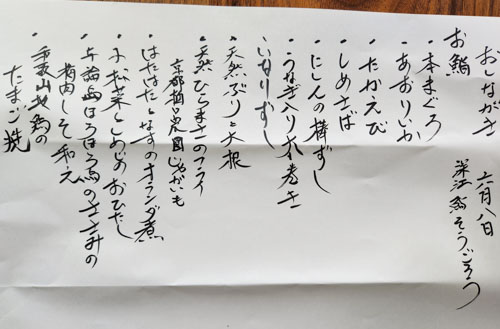 おしながき 六月八日
深江 鮨そうごろう
お鮨
・本まぐろ
・あおりいか
・たかえび
・しめさば
・にしんの棒ずし
・うなぎ入り太巻き
・いなりずし
・天然ぶりと大根
・天然ひらまさのフライ
京都樋口農園じゃがいも
・はたはたとなすのオランダ煮
・小松菜としめじのおひたし
・与論島ほろほろ鳥のささみの
梅肉しそ和え
たまご焼